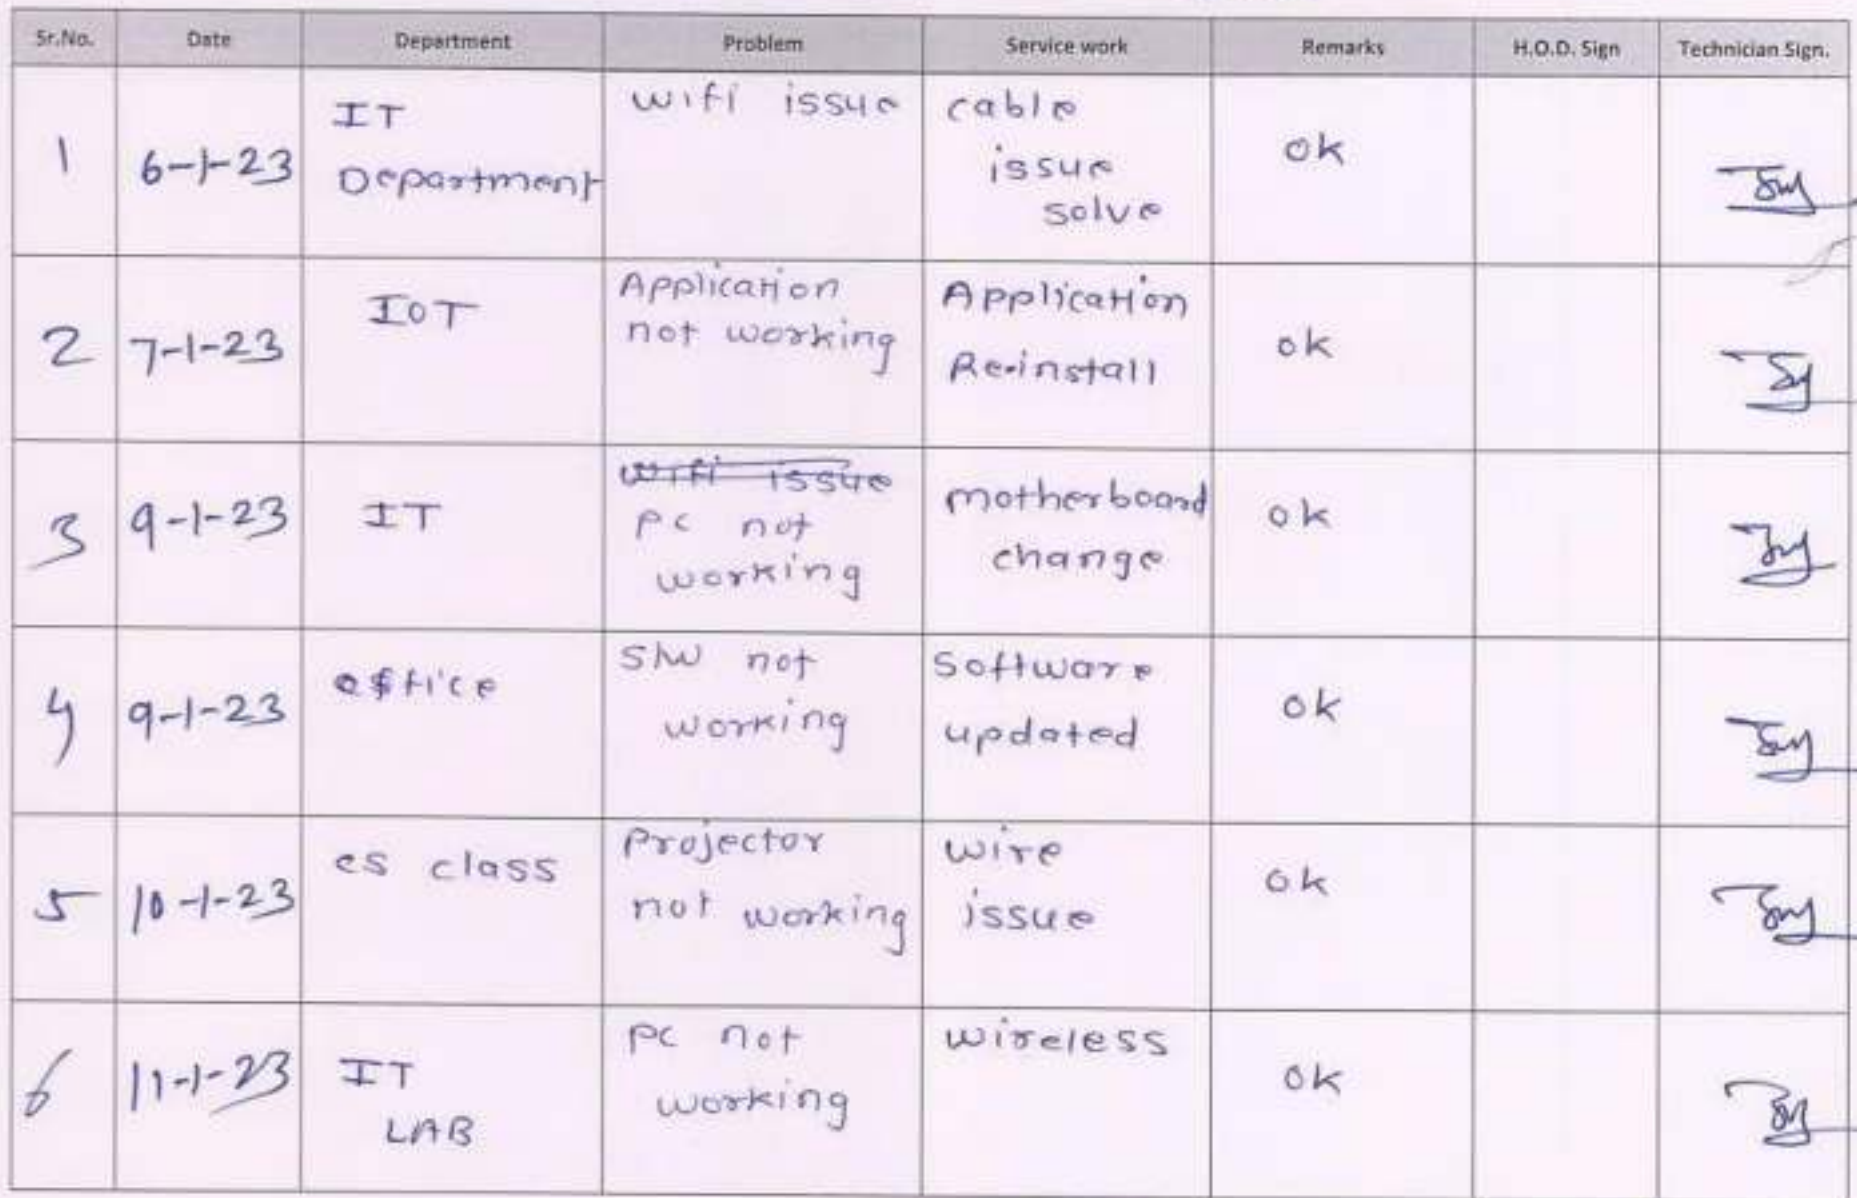 Sr.No. Date Department Problem Service work Remarks H.O.D. Sign Technician Sign.
1 6-1-23 IT Department wifi issue cable issue solve ok
2 7-1-23 IOT Application not working Application Re-install ok
3 9-1-23 IT wifi issue pc not working motherboard change ok
4 9-1-23 office S/W not working Software updated ok
5 10-1-23 es class Projector not working wire issue ok
6 11-1-23 IT LAB pc not working wireless ok